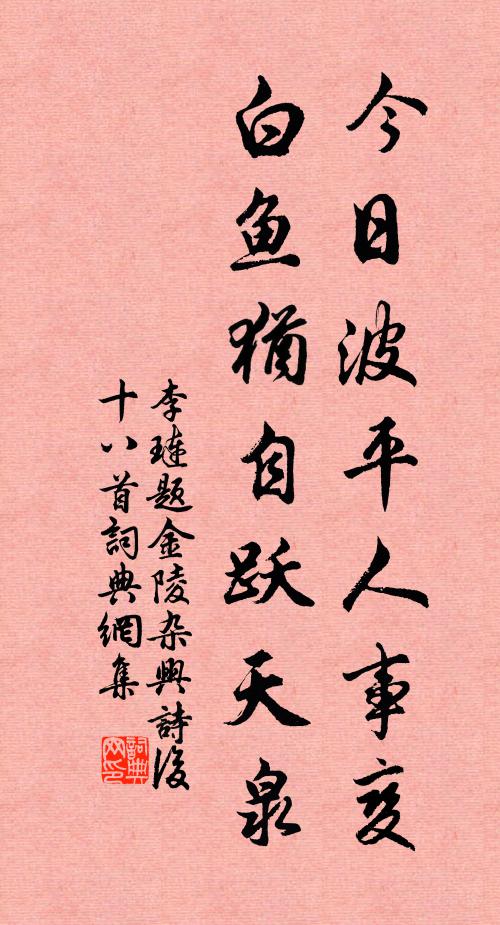 今日波平人事变
白鱼犹自跃天泉
李琏题金陵杂兴诗后
十八首词典网集
词典网印